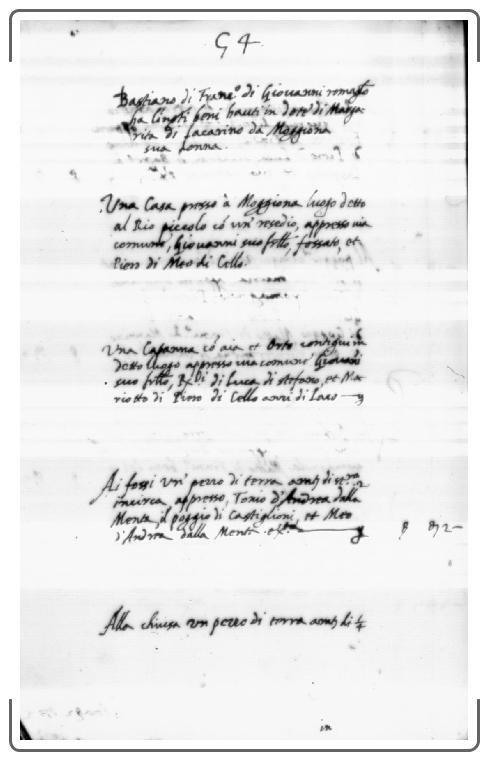 54
Bastiano di Franc.o di Giovanni romagto
ha linfti beni hauti in dote di Marga:
rita di Lacarino da Moggiona
sua donna.
Una Casa presso à Moggiona luogo detto
al Rio piccolo co un' resedio, appresso via
comune, Giovanni suo frllo, fossato, et
Piero di Meo di Cello.
Una Capanna co aia et Orto contigui in
detto luogo appresso via comune Giovani
suo frllo, di Luca di Stefano, et Ma
riotto di Piero di Cello
Ai fossi un' pezzo di terra di
incirca appresso, Tonio d'Andrea dalla
Menta, il poggio di Castiglioni, et Meo
d'Andrea dalla Menta
Alla chiusa un pezzo di terra di
in